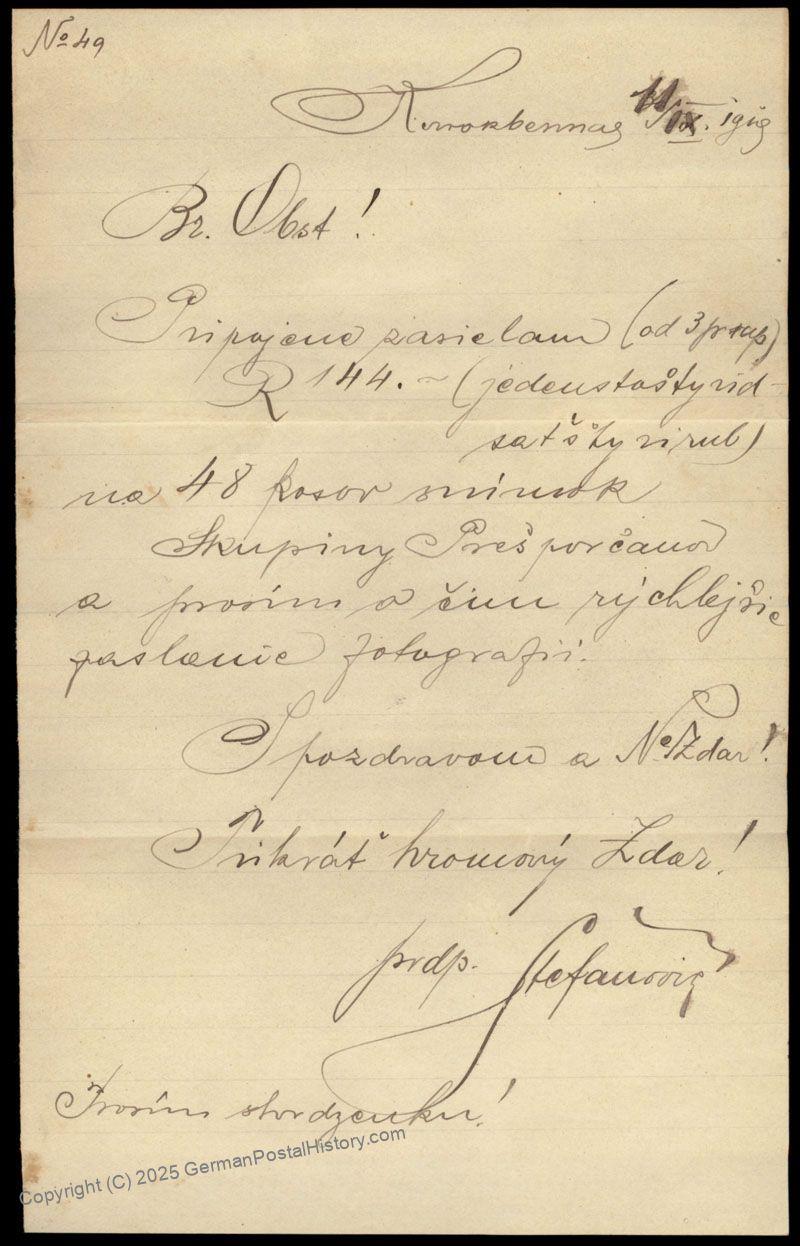 No 49
11/IX. 1919
Br. Obst!
Pripojene zasielam (od 3 )
R 144.- (jedenstoštyrid-
satštyri rub)
na 48 kosov snimok
Skupiny Prešporčanov
a prosím o čim rýchlejšie
zaslanie fotografii.
S pozdravom a Na Zdar!
Trikrát hromový Zdar!
prdp. Štefanovič
Prosím stvrdzenku!
Copyright (C) 2025 GermanPostalHistory.com